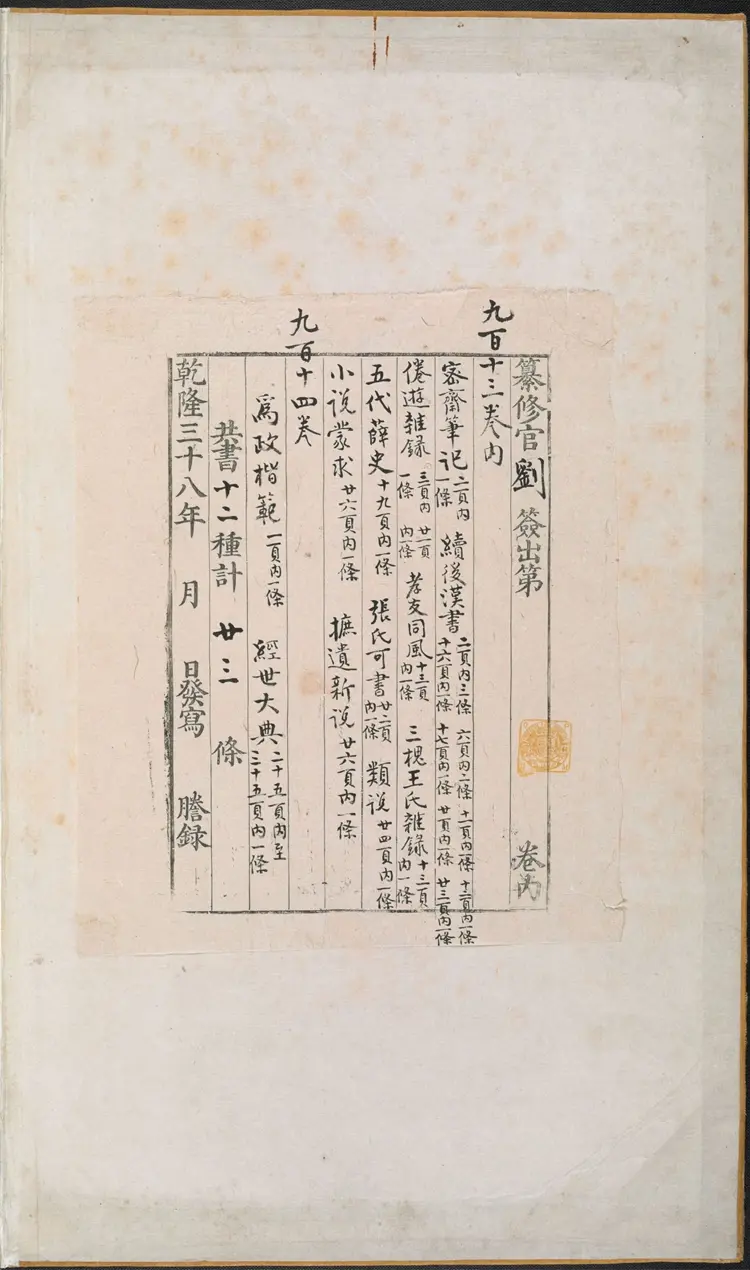 纂修官劉簽出第卷內
九百十三卷内
密齋筆記二頁内一條 續後漢書二頁内三條 六頁内二條 十一頁内一條 十二頁内一條 十六頁内一條 十七頁内一條 廿頁内一條 廿三頁内一條
倦遊雜録三頁内一條 廿一頁内一條 孝友同風十三頁内一條 三槐王氏雜録十三頁内一條
五代薛史十九頁内一條 張氏可書廿二頁内一條 類说廿四頁内一條
小说蒙求廿六頁内一條 摭遺新说廿六頁内一條
九百十四卷
爲政楷範一頁内一條 經世大典二十五頁内至三十五頁内一條
共書十二種計廿三條
乾隆三十八年 月 日發寫 謄録